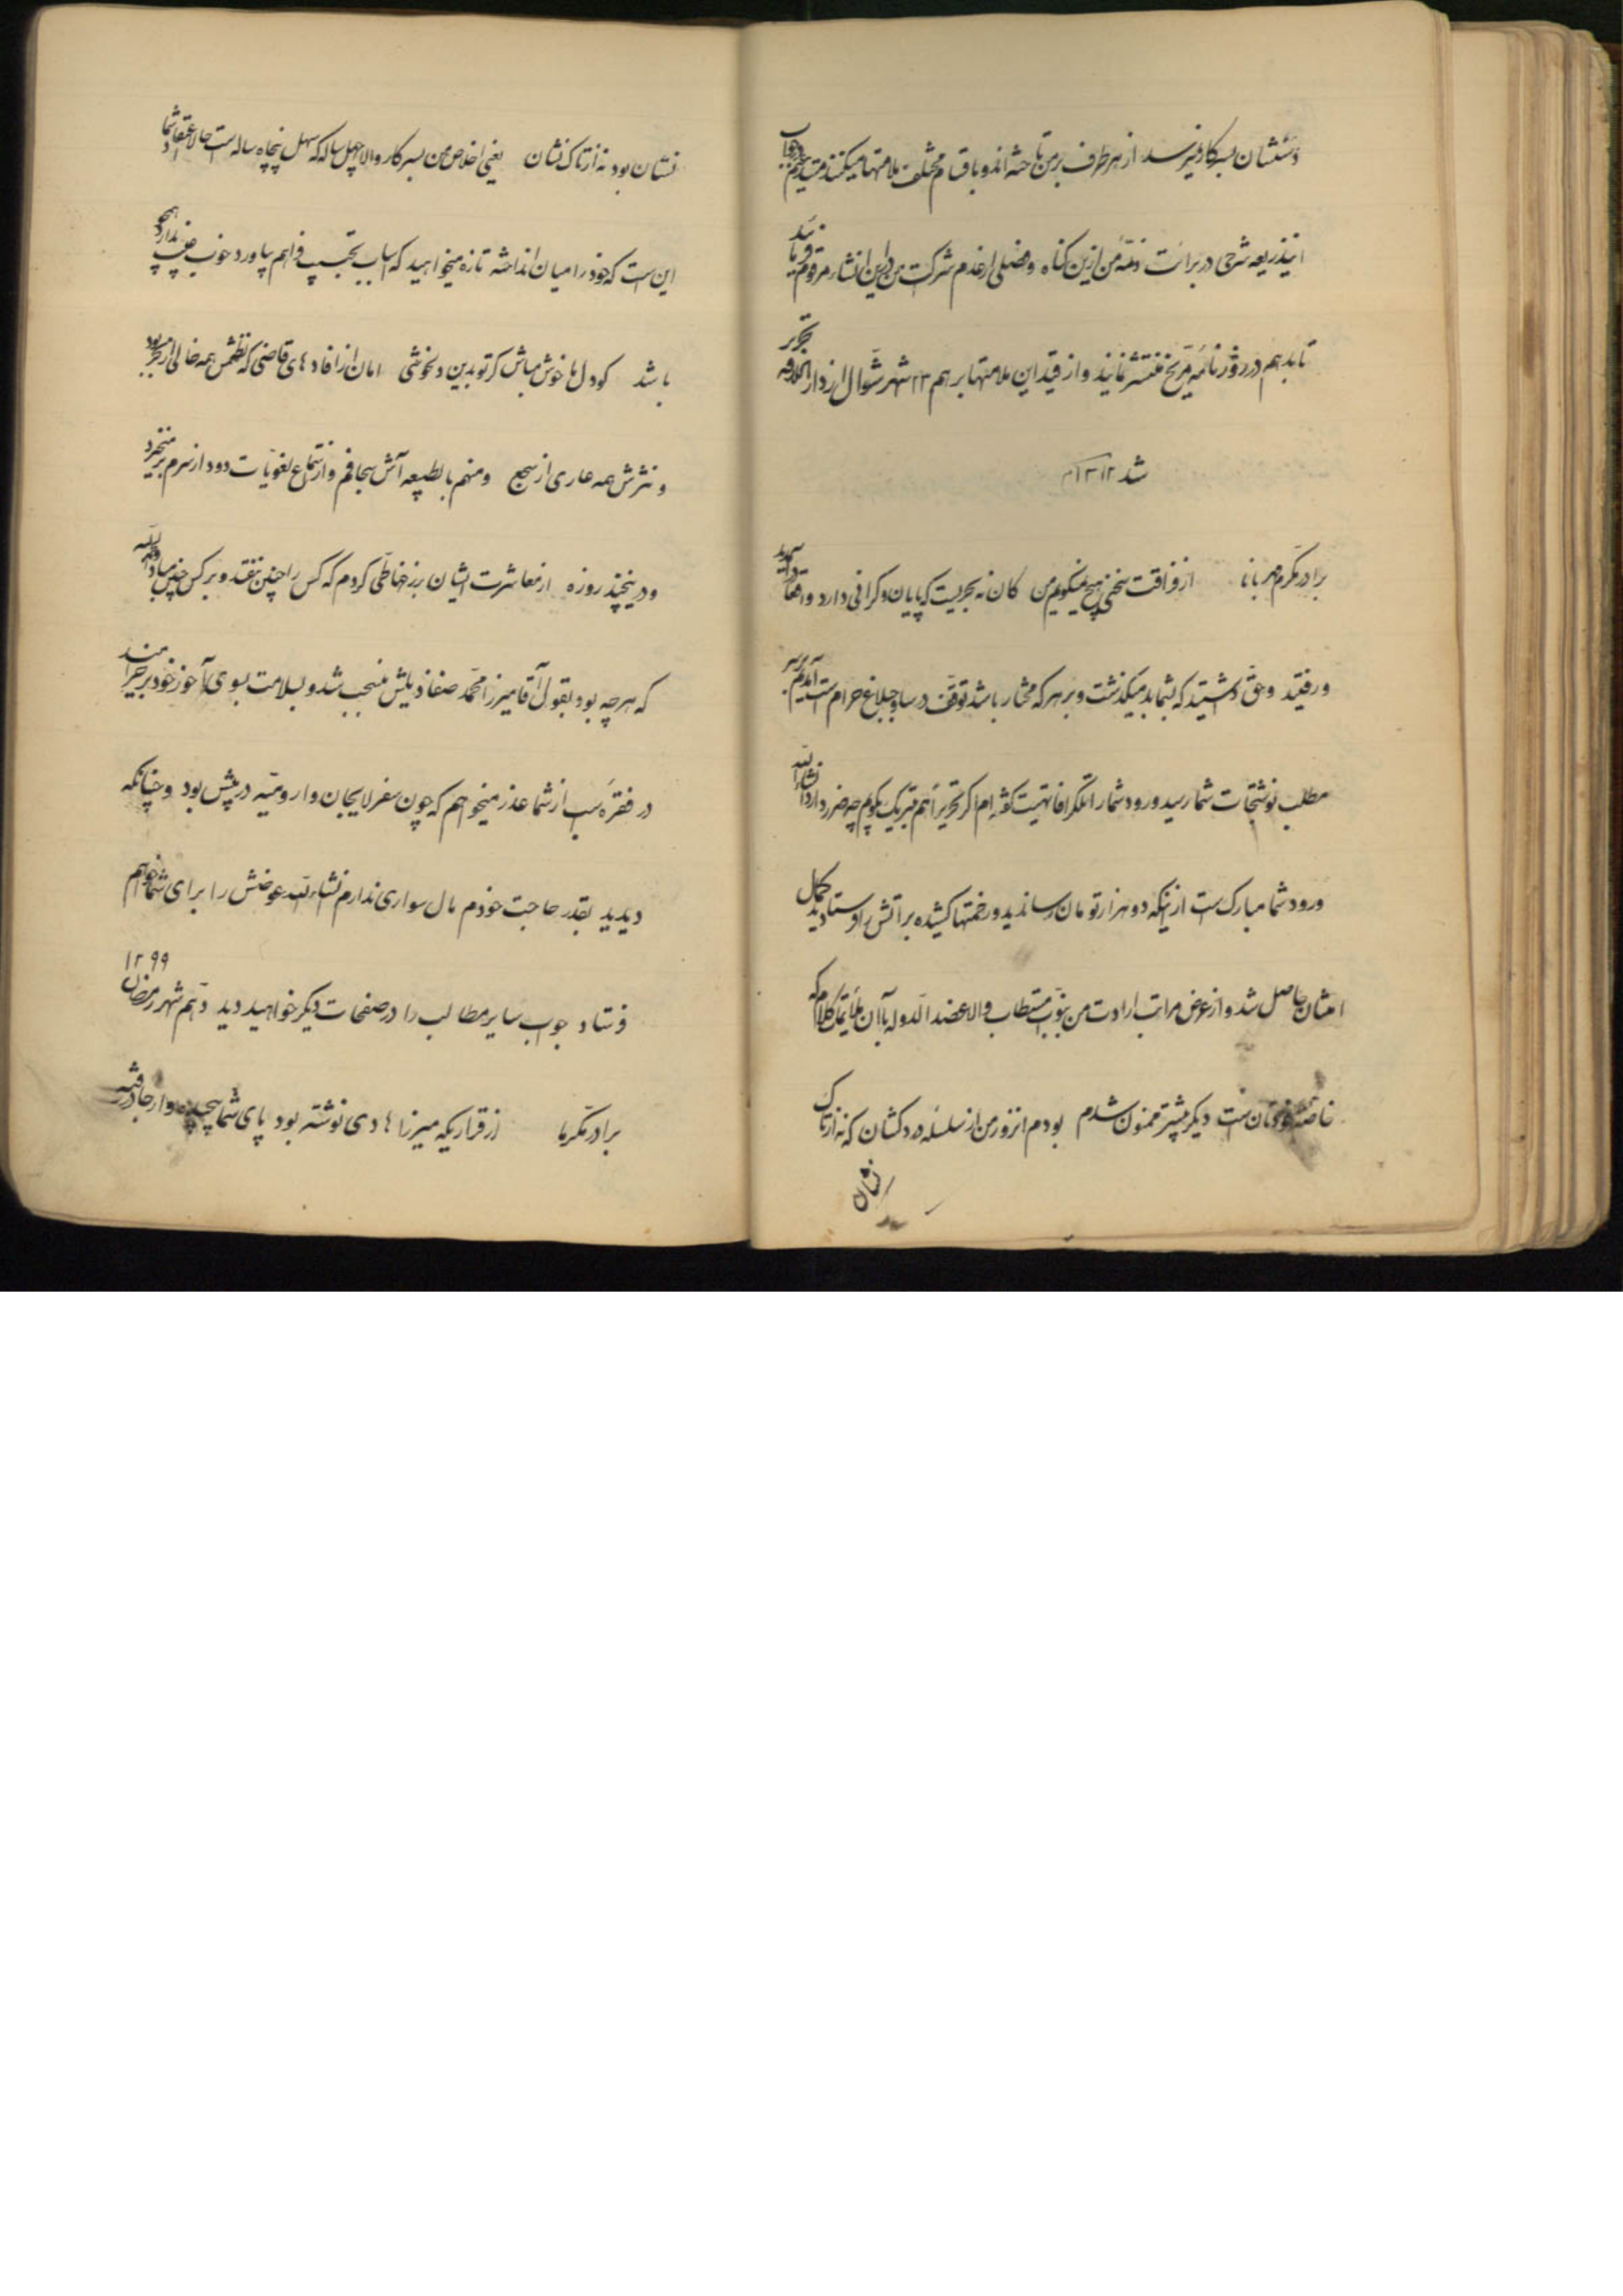 دستشان بسرکار نمیرسد از هر طرف بر من تاخته اند و باقسام مختلف ملامتها میکنند
اینذریعه شرحی در برائت ذمهٔ من ازین کناه و فصلی از عدم شرکت من درین انتشار مرقوم فرمایند
تا بدهم در روزنامهٔ مریخ منتشر نمایند و از قید این ملامتها برهم ۲۳ شهر شوال از دار الخلافه تحریر
شد
برادر مکرم مهربانا از فراقت سخنی هیچ نمیکویم من کان نه بحریست که پایان و کرانی دارد واقعا
و رفتید و حق داشتید که بشما بد میکذشت و بر هر که مختار باشد توقف در ساوجبلاغ حرام است آمدیم بر سر
مطلب نوشتجات شما رسید ورود شما را تلکرافا تهنیت کفته ام اکر تحریرا هم تبریک بکویم چه ضرر دارد انشاءالله
ورود شما مبارک است از اینکه دو هزار تومان رساندید و زحمتها کشیده براتش را فرستادید کمال
امتنان حاصل شد و از عرض مراتب ارادت من بنواب مستطاب والا عضد الدوله بآن کلام که
خاصه خودتان است دیکر بیشتر ممنون شدم بودم انروز من از سلسلهٔ دردکشان که نه از تاک
نشان
نشان بود نه از تاک نشان یعنی اخلاص من بسرکار والا چهل ساله که سهل پنجاه ساله است حالا اعتقاد شما
این است که خود را میان انداخته تازه میخواهید که اسباب تحبیب فراهم بیاورد خوب عیب ندارد همچو
باشد کو دل ما خوش مباش کر تو بدین دلخوشی امان از افادهای قاضی که نظمش همه خالی از بحر بود
و نثرش همه عاری از سجع و منهم بالطبیعه از استماع لغویات دود از سرم بر میخیزد
و درینچند روزه از معاشرت ایشان برخطائی کردم که کس را چنین نیفتد و بر کس چنین مباد
که هر چه بود بقول آقا میرزا محمد منجب شد و بسلامت بسوی آخور خود
در فقره اسب از شما عذر میخواهم که چون سفر لاهیجان و ارومیه در پیش بود و چنانکه
دیدید بقدر حاجت خودم مال سواری ندارم انشاءالله عوضش را برای شما خواهم
فرستاد جواب سایر مطالب را در صفحات دیکر خواهید دید دهم شهر رمضان ۱۲۹۹
برادر مکرما از قراریکه میرزا هادی نوشته بود پای شما پیچیده و از جا در رفته